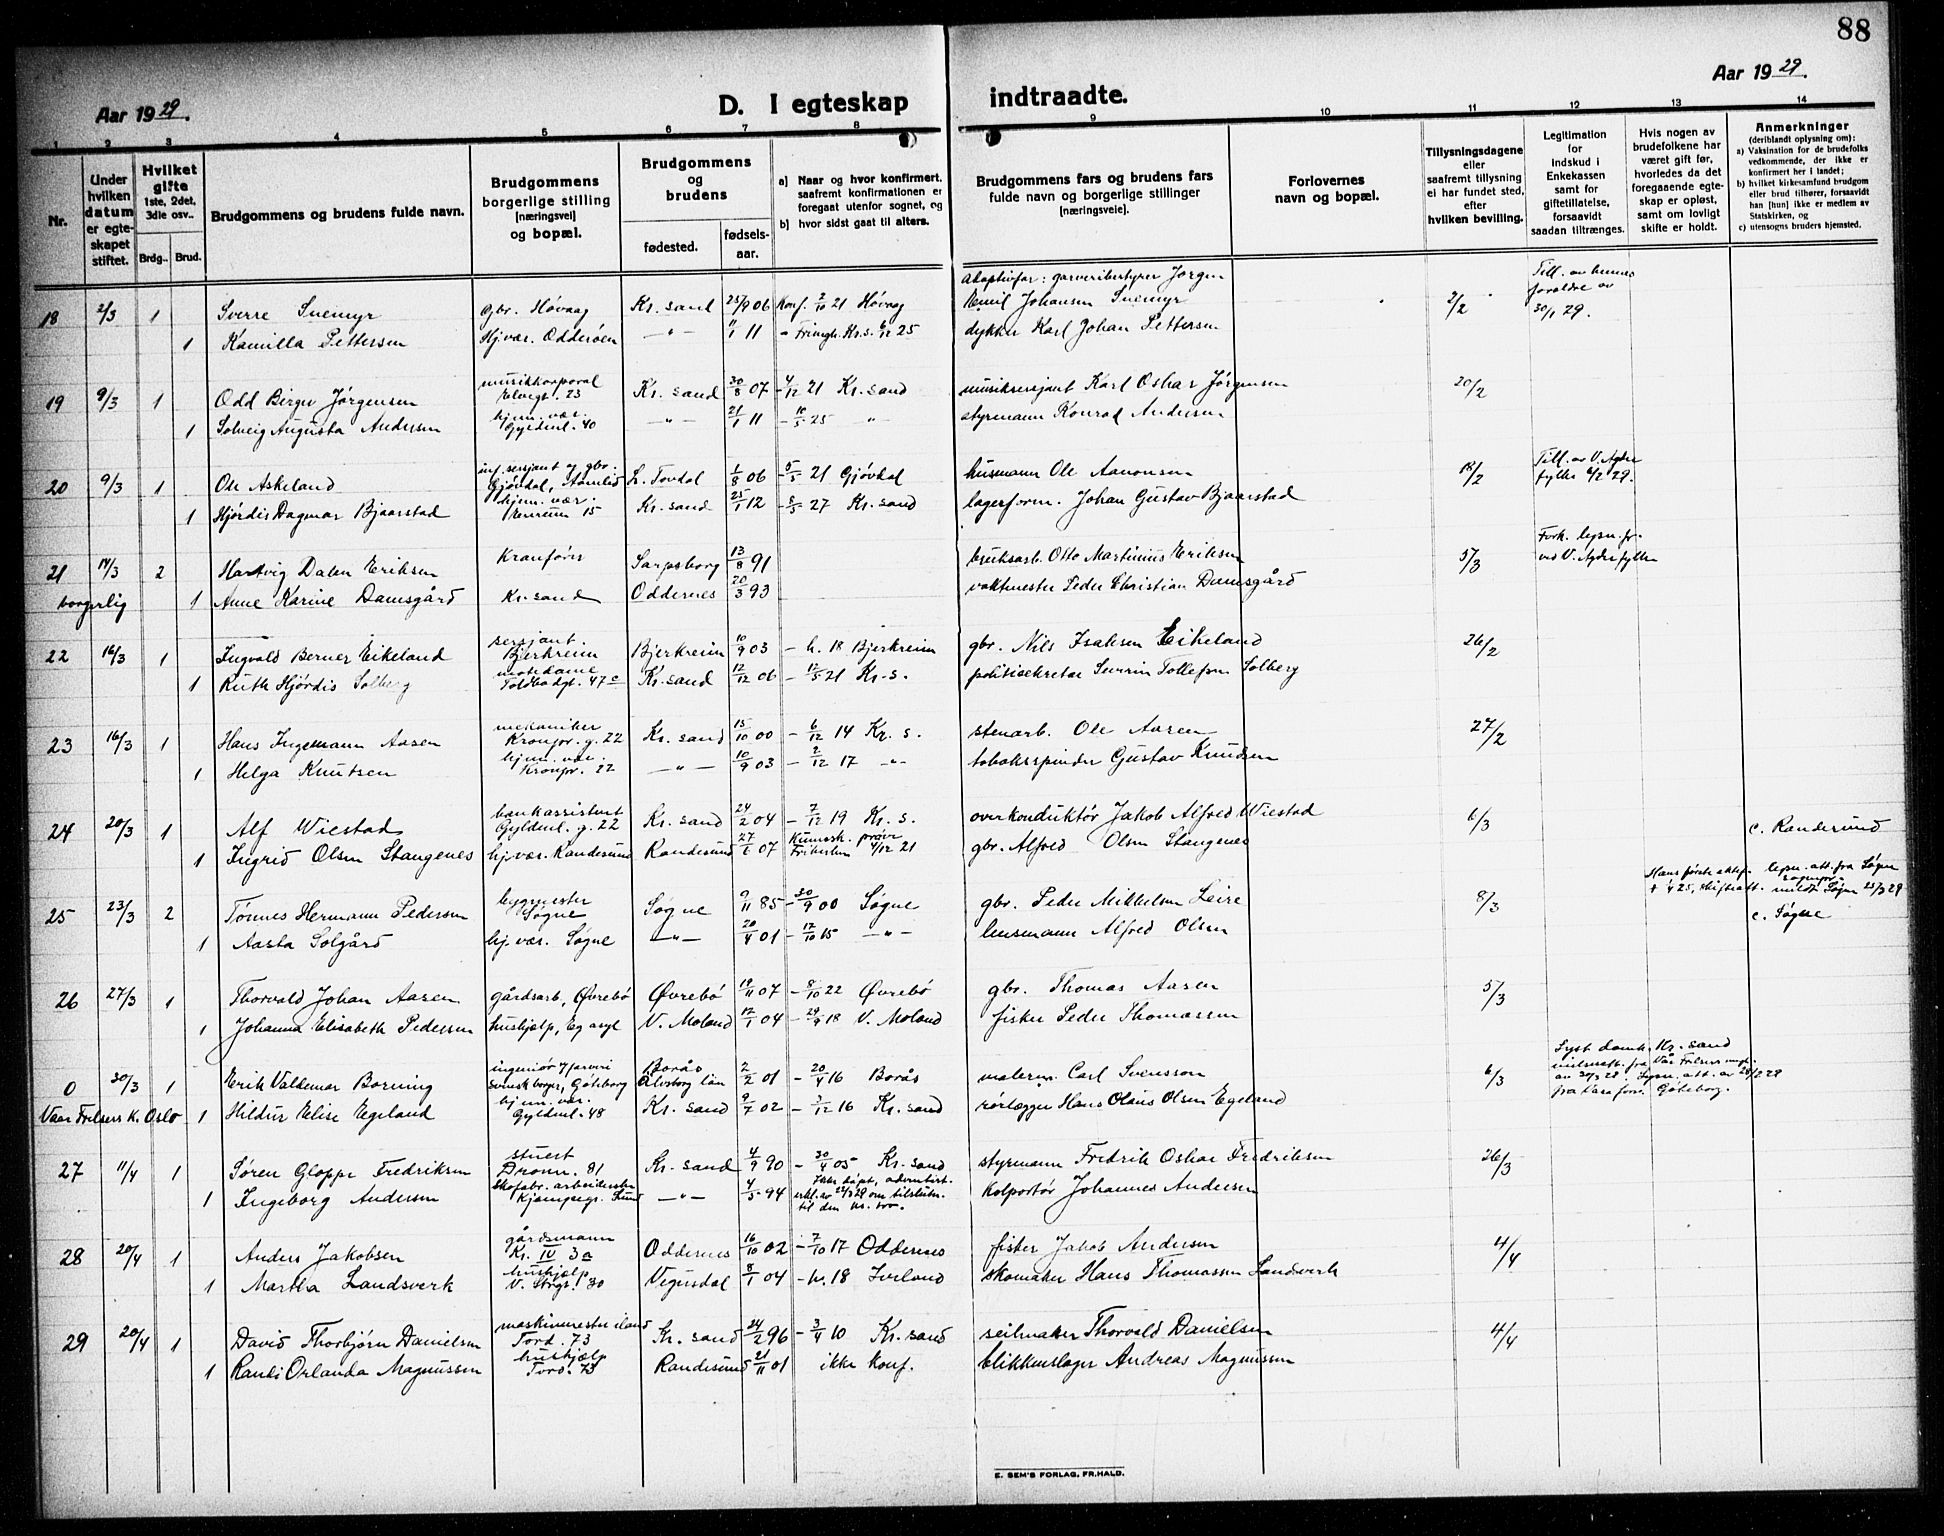 88
Aar 1929.
D. I egteskap indtraadte.
Aar 1929.
1 2 3 4 5 6 7 8 9 10 11 12 13 14
Nr.
Under hvilken datum er egte-skapet stiftet.
Hvilket gifte 1ste, 2det, 3die osv..
Brdg.. Brud.
Brudgommens og brudens fulde navn.
Brudgommens borgerlige stilling [næringsvei] og bopæl.
Brudgommens og brudens
fødested. fødsels-aar.
a) Naar og hvor konfirmert, saafremt konfirmationen er foregaat utenfor sognet, og
b) hvor sidst gaat til alters.
Brudgommens fars og brudens fars fulde navn og borgerlige stillinger [næringsveie].
Forlovernes navn og bopæl.
Tillysningsdagene eller saafremt tillysning ei har fundet sted, efter hvilken bevilling.
Legitimation for Indskud i Enkekassen samt for giftetillatelse, forsaavidt saadan tiltrænges.
Hvis nogen av brudefolkene har været gift før, hvorledes da det foregaaende egte-skap er opløst, samt om lovligt skifte er holdt.
Anmerkninger (deriblandt oplysning om):
a) Vaksination for de brudefolks vedkommende, der ikke er konfirmert her i landet;
b) hvilket kirkesamfund brudgom eller brud tilhører, forsaavidt han [hun] ikke er medlem av Statskirken, og
c) utensogns bruders hjemsted.
18 2/3 1 Sverre Suemyr gbr. Høvaag Kr. sand 25/9 06 Konf. 2/10 21 Høvaag adoptivfar: garveribestyrer Jørgen Emil Johansen Suemyr 2/2 Till. av hennes foreldre av 30/1 29.
1 Kamilla Pettersen Hj. vær. Odderøen —"— 9/1 11 dykker Karl Johan Pettersen
19 9/3 1 Odd Birger Jørgensen musikkorporal Elvegt. 23 Kr. sand 30/8 07 – 4/12 21 Kr. sand musiksersjant Karl Oskar Jørgensen 20/2
1 Solveig Augusta Andersen hjem. vær. Gyldenl. 40 —"— 21/1 11 – 10/5 25 " styrmann Konrad Andersen
20 9/3 1 Ole Askeland inf. sersjant og gbr. Gjøvdal, L. Tovdal 1/8 06 – 5/5 21 Gjøvdal husmann Ole Aanonsen 18/2 Till. av V. Agder fylke 6/2 29.
1 Hjørdis Dagmar Bjaarstad hjem. vær. 15 Kr. sand 25/1 12 27 Kr. sand lagerform. Johan Gustav Bjaarstad
21 14/3 2 Hartvig Dalen Eriksen Kranfører Sarpsborg 13/8 91 bruksarb. Otto Martinius Eriksen 5/3 Fork. lysn. fr. ved V. Agder fylke
borgerlig 1 Anne Karine Damsgård Kr. sand Oddernes 20/3 93 vaktmester Peder Christian Damsgård
22 16/3 1 Ingvald Berner Eikeland sersjant. Bjerkreim Bjerkreim 10/9 03 – h. 18 Bjerkreim gbr. Nils Isaksen Eikeland 26/2
1 Ruth Hjørdis Solberg motedame Toldbodgt. 47 Kr. sand 12/12 06 – 12/5 21 Kr. s. politisekretær Severin Tollefsen Solberg
23 16/3 1 Hans Ingemann Aasen mekaniker Kronpr. g. 22 Kr. sand 15/10 00 – 6/12 14 Kr. s. stenarb. Ole Aasen 27/2
1 Helga Knutsen hjem. vær. Kronpr. 22 —"— 10/9 03 – 2/12 17 —"— tobakspinder Gustav Knudsen
24 20/3 1 Alf Wiestad bankassistent Gyldenl. g. 22 Kr. sand 24/2 04 – 7/12 19 Kr. s. overkonduktør Jakob Alfred Wiestad 6/3 c. Randesund
1 Ingrid Olsen Stangenes hj. vær. Randesund Randesund 27/6 07 Kunnsk. prøve 4/12 21 gbr. Alfred Olsen Stangenes
25 23/3 2 Tønnes Hermann Pedersen bygmester Søgne Søgne 9/11 85 – 30/9 00 Søgne gbr. Peder Mikkelsen Leire 8/3 Hans første aktesk. lysn. att. fra Søgne 25/3 29 c. Søgne
1 Aasta Solgård hj. vær. Søgne —"— 20/4 01 – 17/10 15 —"— lensmann Alfred Olsen
26 27/3 1 Thorvald Johan Aasen gårdsarb., Øvrebø Øvrebø 19/11 07 – 8/10 22 Øvrebø gbr. Thomas Aasen 5/3
1 Johanna Elisabeth Pedersen hushjælp, Eg asyl V. Moland 12/1 04 – 29/9 18 V. Moland fisker Peder Thomassen
0 30/3 1 Erik Valdemar Borning ingeniør svensk borger, Göteborg Borås Älvsborg län 2/2 01 – 20/4 16 Borås malerm. Carl Svensson 6/3 Lyst domk. Kr. sand fra Vår Frelsers Göteborg.
Vaar Frelsers K. Oslo 1 Hildur Elise Egeland hjem. vær. Gyldenl. 48 Kr. sand 9/7 02 – 3/12 16 Kr. sand rørlegger Hans Olaus Olsen Egeland
27 11/4 1 Søren Gloppe Fredriksen stuert Dronn. 81 Kr. sand 4/9 90 – 30/4 05 Kr. sand styrmann Fredrik Oskar Fredriksen 26/3
1 Ingeborg Andersen skofabr. arbeiderske Kjempegt. Lund —"— 4/5 94 Ikke døpt, adventist. erkl. av 22/3 29 om tilslutn. til den kr. tro. kolportør Johannes Andersen
28 20/4 1 Anders Jakobsen gårdsmann Kr. IV 3a Oddernes 16/10 02 – 7/10 17 Oddernes fisker Jakob Andersen 4/4
1 Martha Landsverk hushjælp V. Strgt. 30 Vegusdal 8/1 04 – h. 18 Iveland skomaker Hans Thomassen Landsverk
29 20/4 1 David Thorbjørn Danielsen maskinmester iland Tord. 73 Kr. sand 24/2 96 – 3/4 10 Kr. sand seilmaker Thorvald Danielsen 4/4
1 Randi Orlanda Magnussen hushjælp Tord. 73 Randesund 21/11 01 ikke konf. blikkenslager Andreas Magnussen
E. SEM'S FORLAG, FR.HALD.